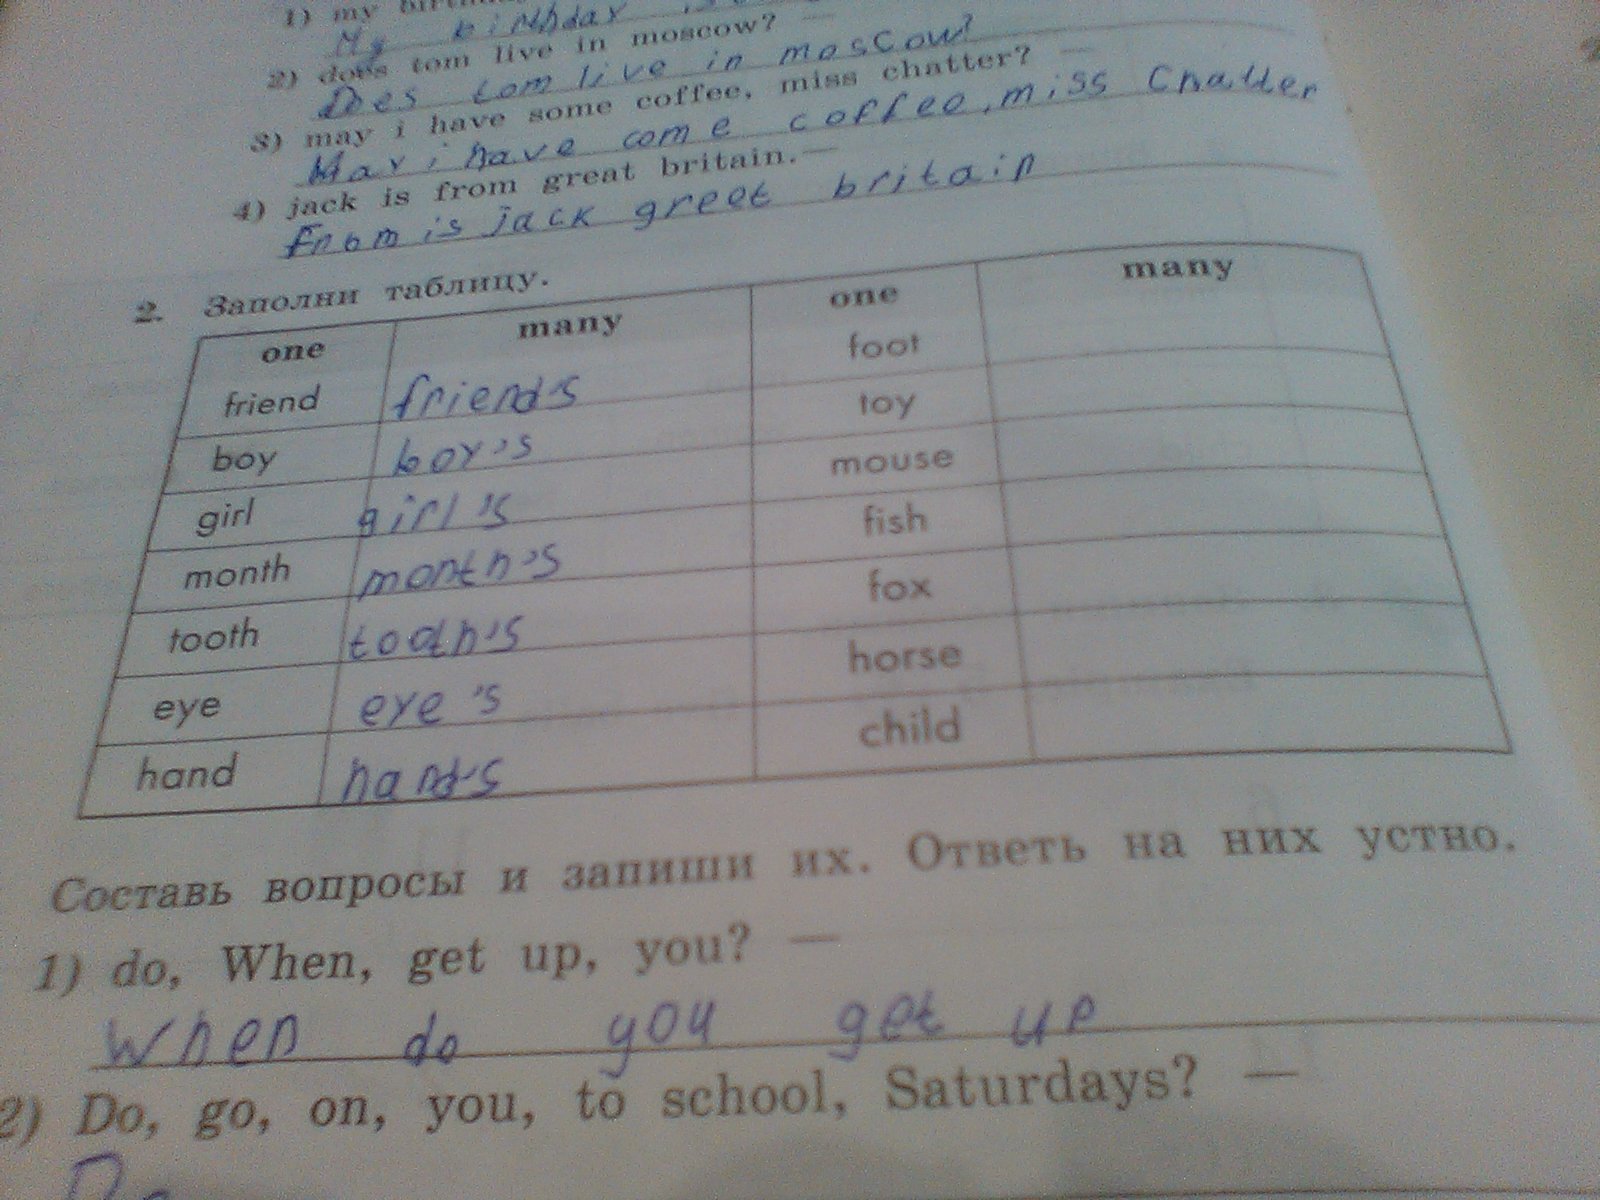 1) my
My birthday
2) does tom live in moscow? —
Does tom live in moscow?
3) may i have some coffee, miss chatter? —
May i have come coffee, miss Chatter
4) jack is from great britain. —
From is jack greet britain
2. Заполни таблицу.
one many one many
friend friend's foot
boy boy's toy
girl girl's mouse
month month's fish
tooth tooth's fox
eye eye's horse
hand hand's child
Составь вопросы и запиши их. Ответь на них устно.
1) do, When, get up, you? —
When do you get up
2) Do, go, on, you, to school, Saturdays? —